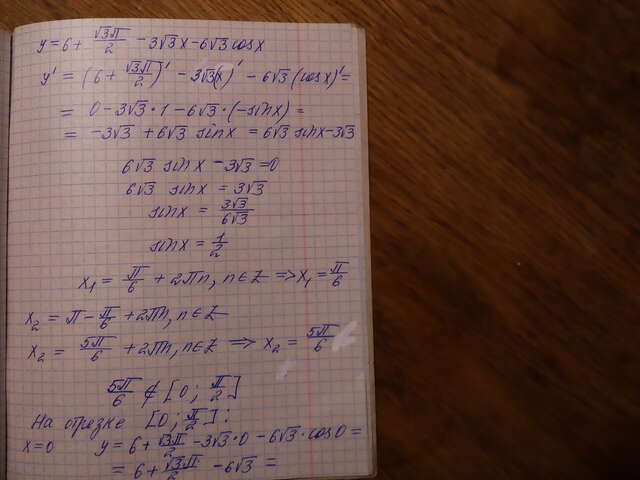 y = 6 + √3π/2 - 3√3x - 6√3 cosx
y' = (6 + √3π/2)' - 3√3(x)' - 6√3 (cosx)' =
= 0 - 3√3 · 1 - 6√3 · (-sinx) =
= -3√3 + 6√3 sinx = 6√3 sinx - 3√3
6√3 sinx - 3√3 = 0
6√3 sinx = 3√3
sinx = 3√3/6√3
sinx = 1/2
x₁ = π/6 + 2πn, n ∈ Z => x₁ = π/6
x₂ = π - π/6 + 2πn, n ∈ Z
x₂ = 5π/6 + 2πn, n ∈ Z => x₂ = 5π/6
5π/6 ∉ [0; π/2]
На отрезке [0; π/2]:
x = 0 y = 6 + √3π/2 - 3√3 · 0 - 6√3 · cos0 =
= 6 + √3π/2 - 6√3 =